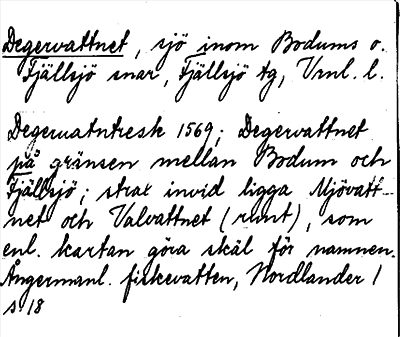 Degervattnet, sjö inom Bodums o.
Fjällsjö snar, Fjällsjö tg, Vrnl. l.
Degeruatntresk 1569; Degervattnet
på gränsen mellan Bodum och
Fjällsjö; strax invid ligga Mjövatt-
net och Valvattnet (runt), som
enl. kartan göra skäl för namnen.
Ångermanl. fiskevatten, Nordlander 1
s 18